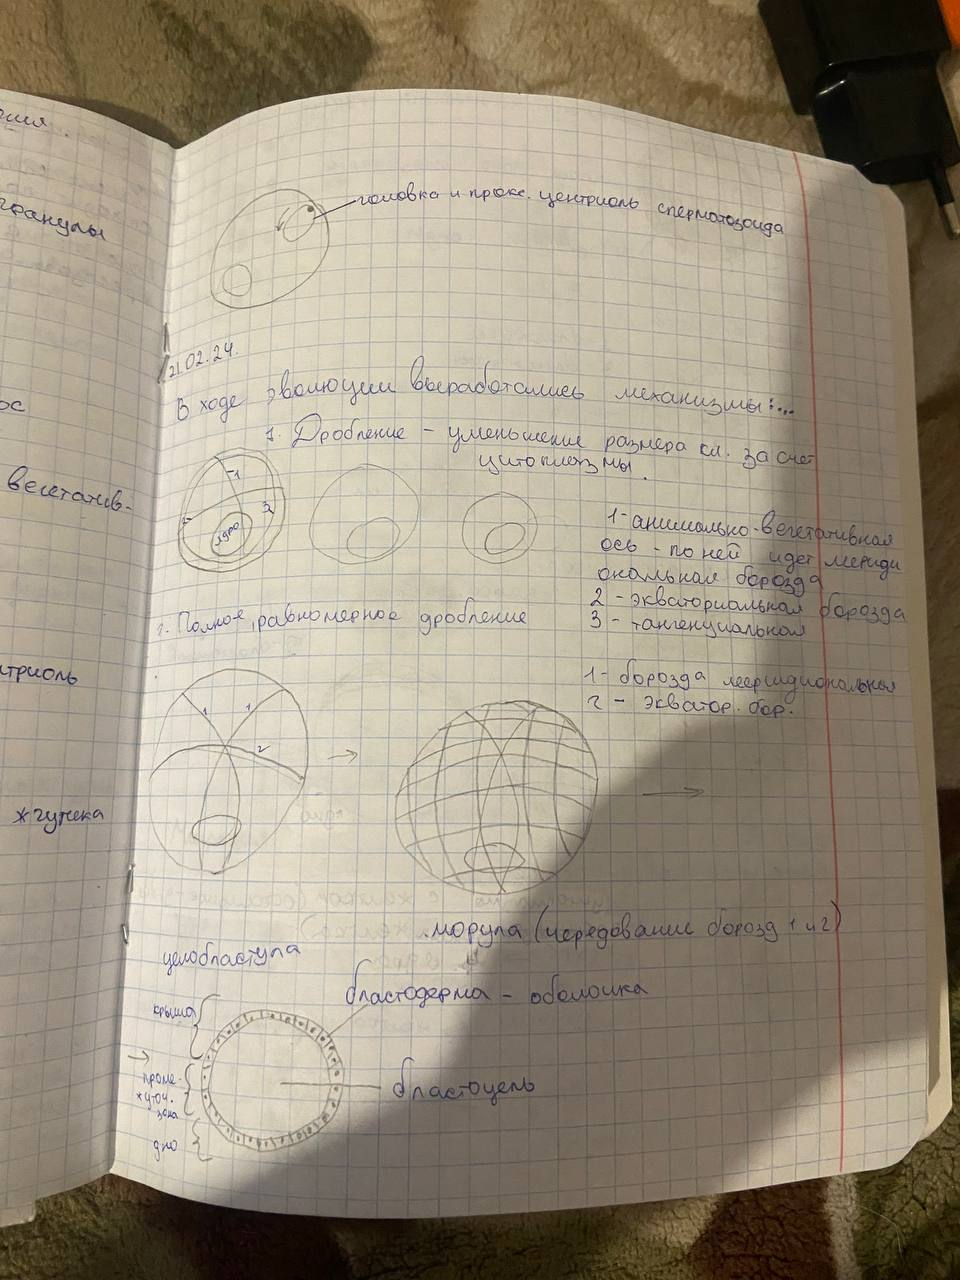 гранулы
ос
вегетатив-
триоль
жгутика
головка и прокс. центриоль сперматозоида
21.02.24.
В ходе эволюции выработались механизмы:...
1. Дробление - уменьшение размера кл. за счет
цитоплазмы.
1
2
3
ядро
1-анимально-вегетативная
ось - по ней идет мериди
ональная борозда
2 - экваториальная борозда
3 - тангенциальная
1. Полное, равномерное дробление
1- борозда меридиональная
2 - экватор. бор.
1
1
2
морула (чередование борозд 1 и 2)
целобластула
бластодерма - оболочка
крыша
проме-
жуточ.
зона
дно
бластоцель